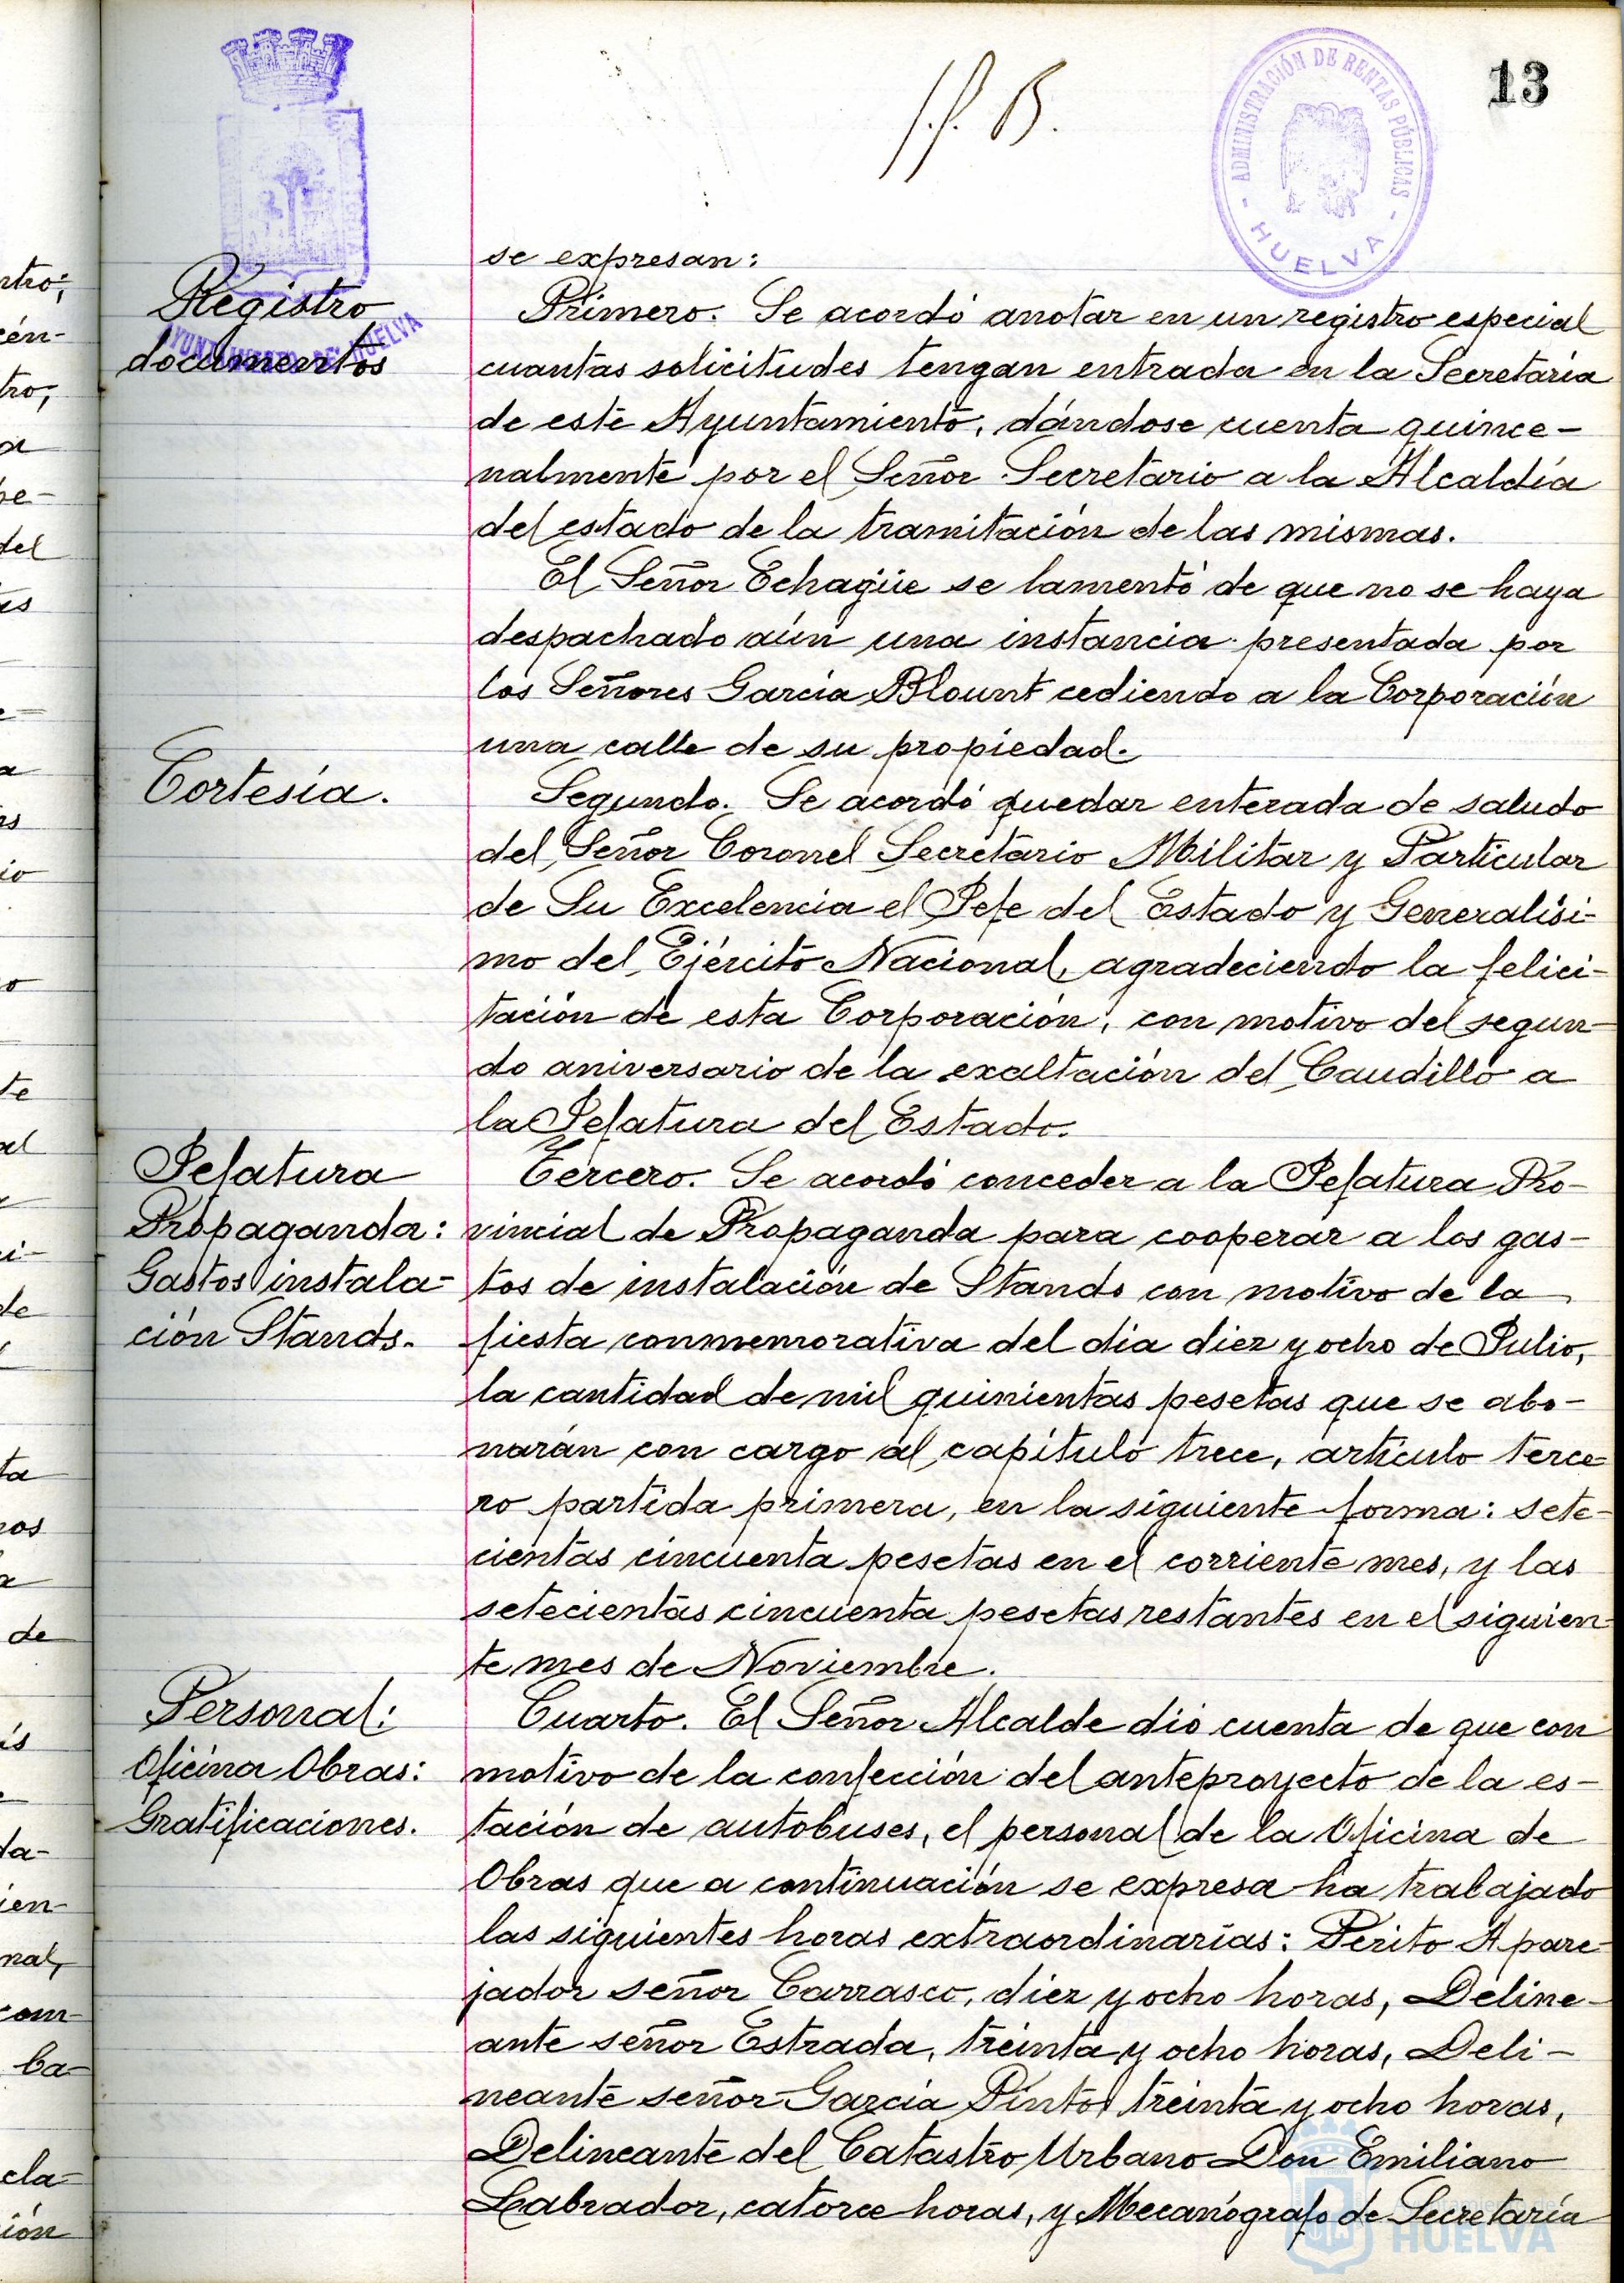 13
ADMINISTRACIÓN DE RENTAS PÚBLICAS
- HUELVA -
AYUNTAMIENTO DE HUELVA
se expresan:
Registro
documentos
Primero. Se acordó anotar en un registro especial
cuantas solicitudes tengan entrada en la Secretaría
de este Ayuntamiento, dándose cuenta quince-
nalmente por el Señor Secretario a la Alcaldía
del estado de la tramitación de las mismas.
El Señor Echagüe se lamentó de que no se haya
despachado aún una instancia presentada por
los Señores García Blount cediendo a la Corporación
una calle de su propiedad.
Cortesía.
Segundo. Se acordó quedar enterada de saludo
del Señor Coronel Secretario Militar y Particular
de Su Excelencia el Jefe del Estado y Generalísi-
mo del Ejército Nacional, agradeciendo la felici-
tación de esta Corporación, con motivo del segun-
do aniversario de la exaltación del Caudillo a
la Jefatura del Estado.
Jefatura
Propaganda:
Gastos instala-
ción Stands.
Tercero. Se acordó conceder a la Jefatura Pro-
vincial de Propaganda para cooperar a los gas-
tos de instalación de Stands con motivo de la
fiesta conmemorativa del día diez y ocho de Julio,
la cantidad de mil quinientas pesetas que se abo-
narán con cargo al capítulo trece, artículo terce-
ro partida primera, en la siguiente forma: sete-
cientas cincuenta pesetas en el corriente mes, y las
setecientas cincuenta pesetas restantes en el siguien-
te mes de Noviembre.
Personal:
Oficina Obras:
Gratificaciones.
Cuarto. El Señor Alcalde dió cuenta de que con
motivo de la confección del anteproyecto de la es-
tación de autobuses, el personal de la Oficina de
Obras que a continuación se expresa ha trabajado
las siguientes horas extraordinarias: Perito Apare-
jador señor Carrasco, diez y ocho horas, Deline-
ante señor Estrada, treinta y ocho horas, Deli-
neante señor García Pinto, treinta y ocho horas,
Delineante del Catastro Urbano Don Emiliano
Labrador, catorce horas, y Mecanógrafo de Secretaría
HUELVA